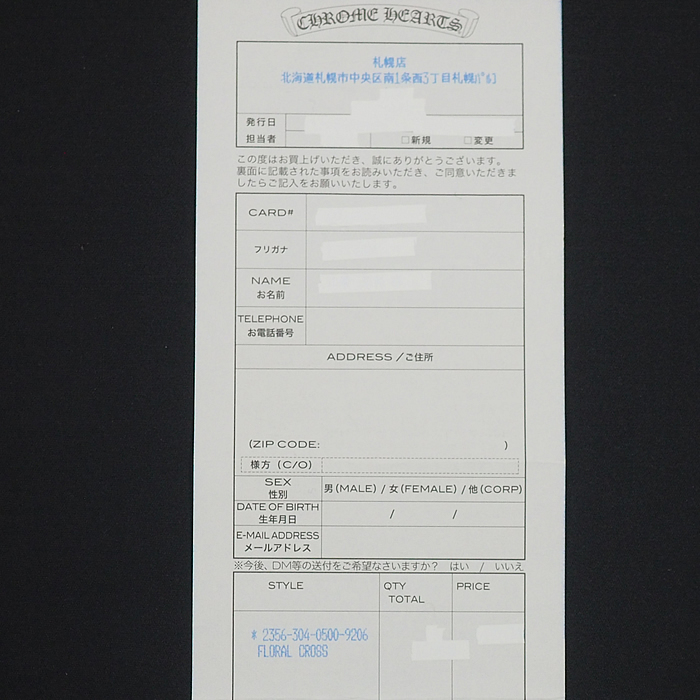 CHROME HEARTS
札幌店
北海道札幌市中央区南1条西3丁目札幌ﾊﾟﾙｺ
発行日
担当者 □新規 □変更
この度はお買上げいただき、誠にありがとうございます。
裏面に記載された事項をお読みいただき、ご同意いただきま
したらご記入をお願いいたします。
CARD#
フリガナ
NAME
お名前
TELEPHONE
お電話番号
ADDRESS /ご住所
(ZIP CODE: )
様方 (C/O)
SEX
性別
男(MALE) / 女(FEMALE) / 他(CORP)
DATE OF BIRTH
生年月日
/ /
E-MAIL ADDRESS
メールアドレス
※今後、DM等の送付をご希望なさいますか? はい / いいえ
STYLE QTY PRICE
TOTAL
* 2356-304-0500-9206
FLORAL CROSS